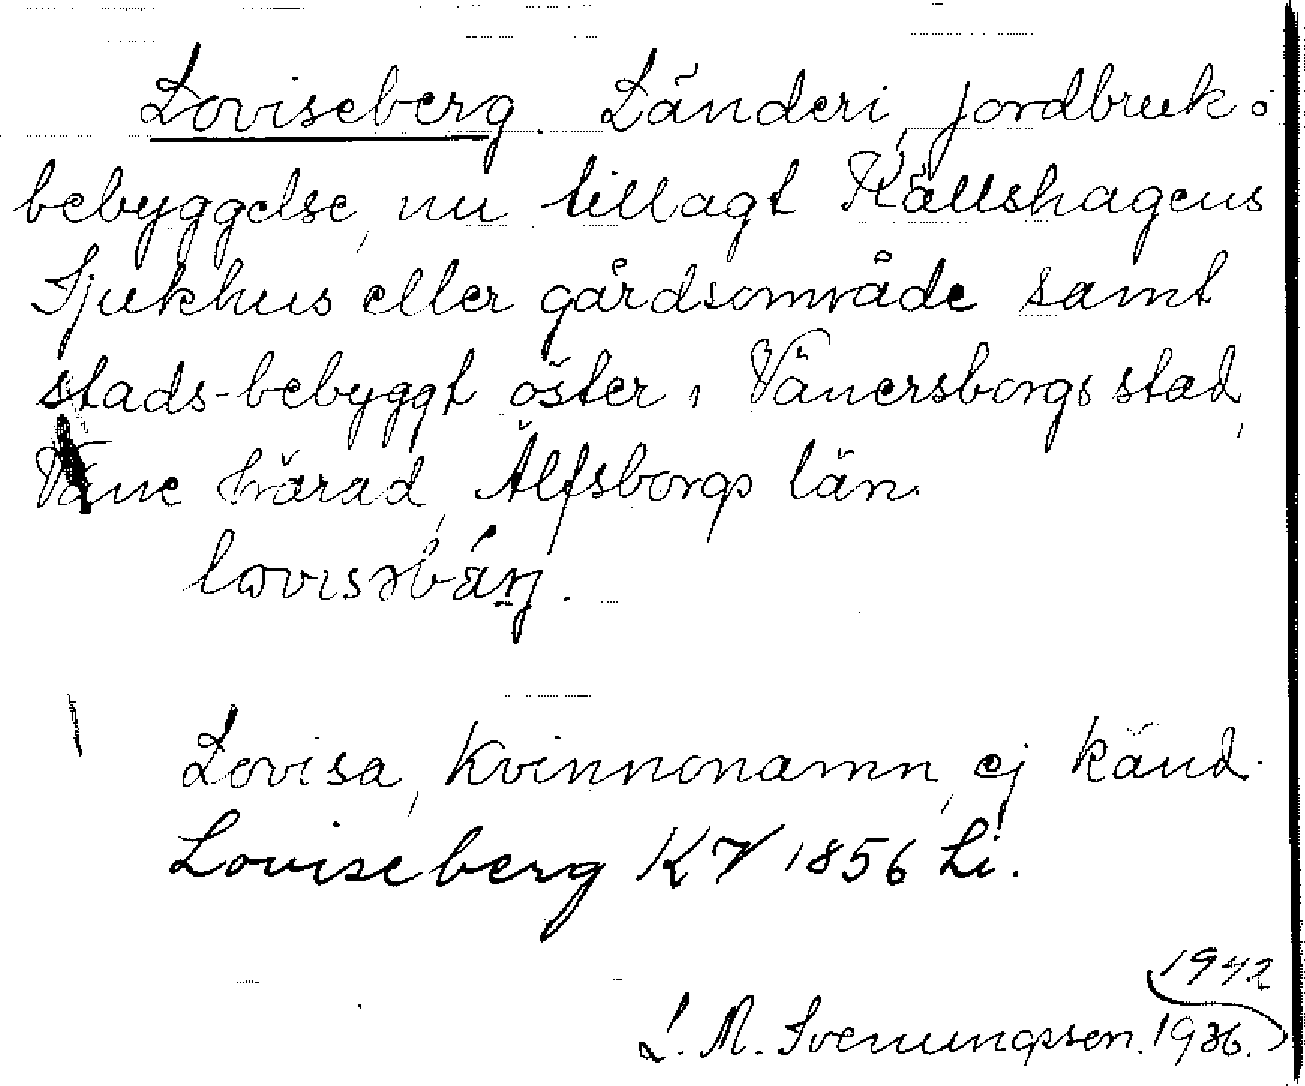 Loviseberg. Länderi, jordbruk o
bebyggelse, nu tillagt Källshagens
Sjukhus eller gårdsområde samt
stads-bebyggt öster, Vänersborgs stad,
Väne härad, Älfsborgs län.
Lovisa, kvinnonamn, ej känd.
Louiseberg KV 1856 Li.
1942
L. M. Svenungsson. 1936.